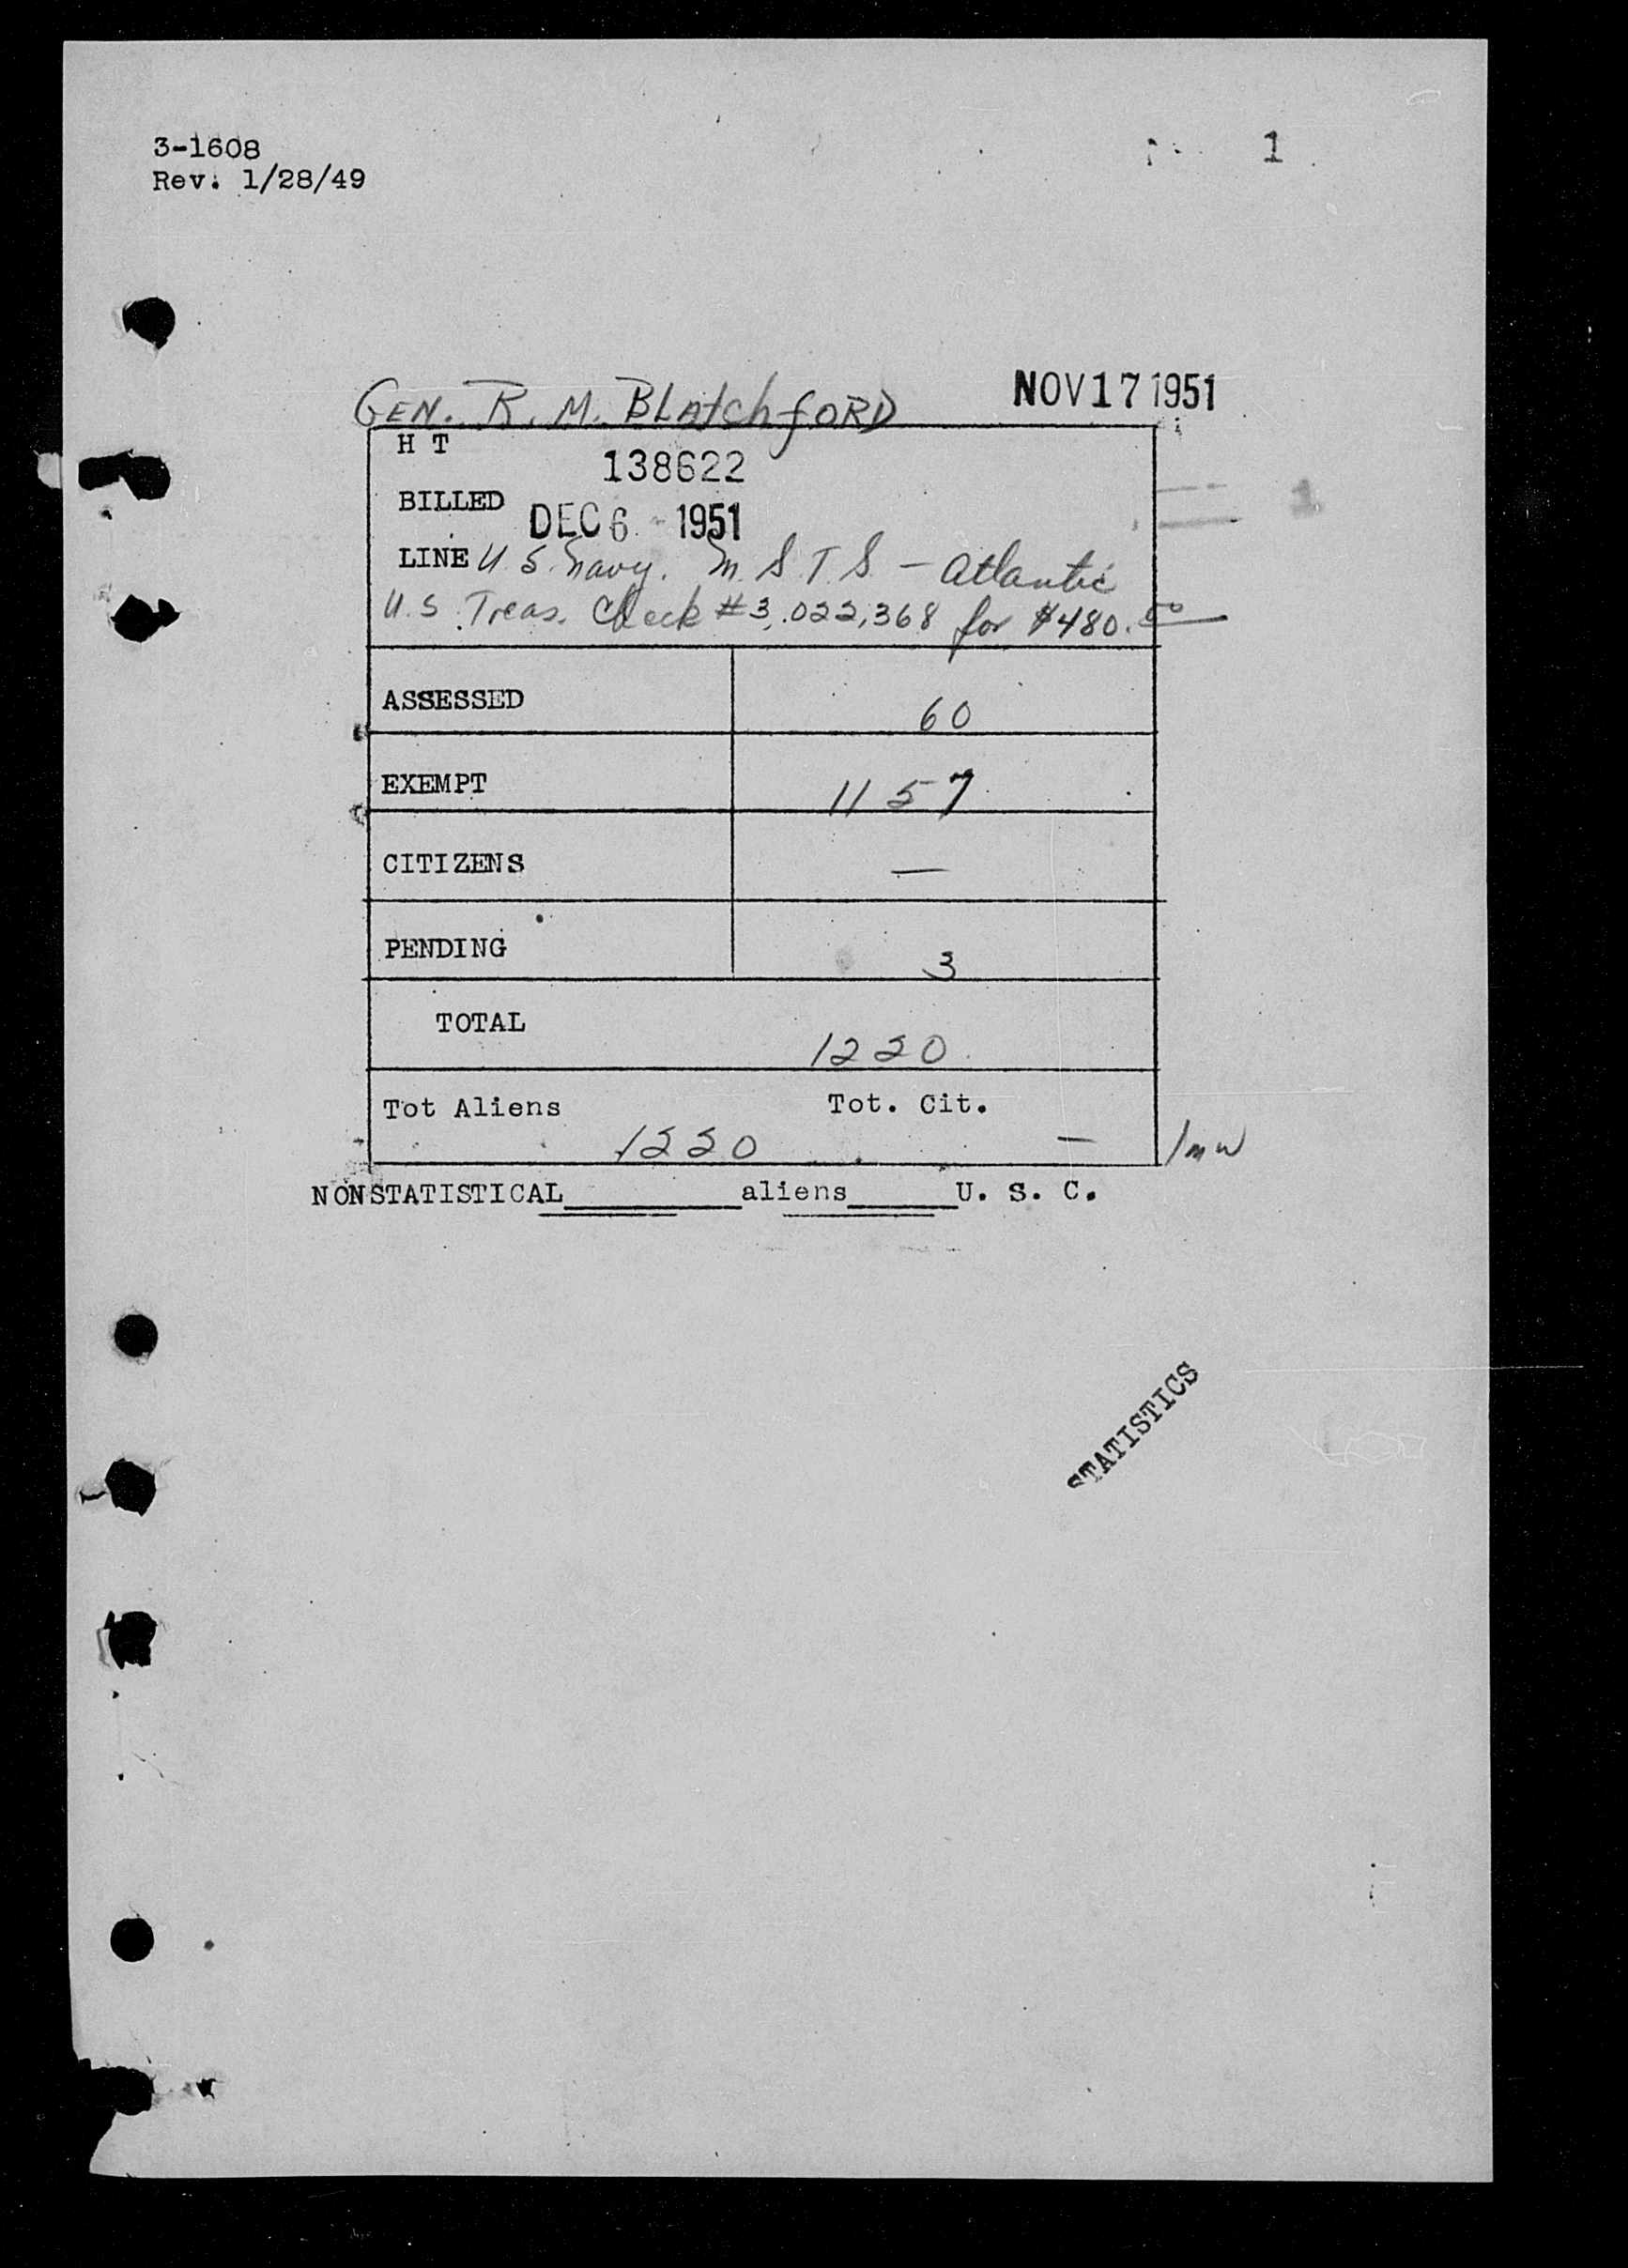 3-1608
1
Rev. 1/28/49
GEN. R. M. BLatchfORD NOV 17 1951
H T
138622
BILLED
DEC 6 - 1951
LINE U. S. Navy. M. S. T. S. - Atlantic
U.S. Treas. Check # 3,022,368 for $480.
ASSESSED 60
EXEMPT 1157
CITIZENS —
PENDING 3
TOTAL 1220
Tot Aliens Tot. Cit.
1220 —
NONSTATISTICAL aliens U. S. C.
STATISTICS